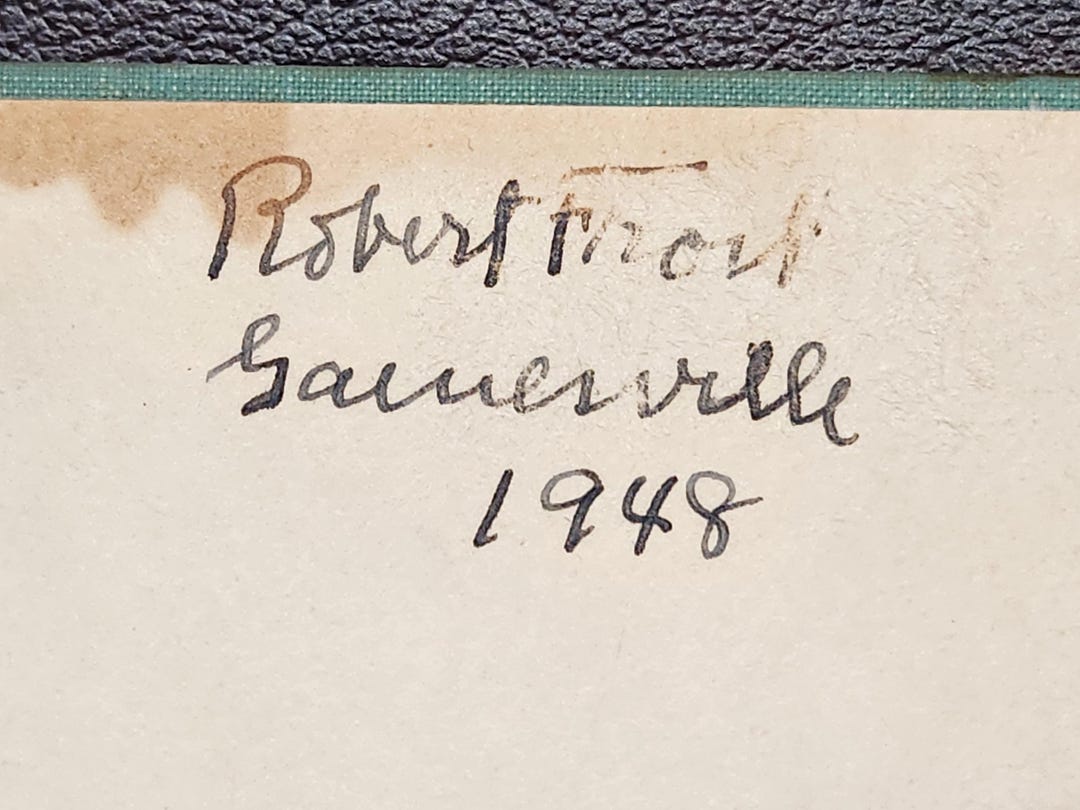 Robert Frost
Gainesville
1948